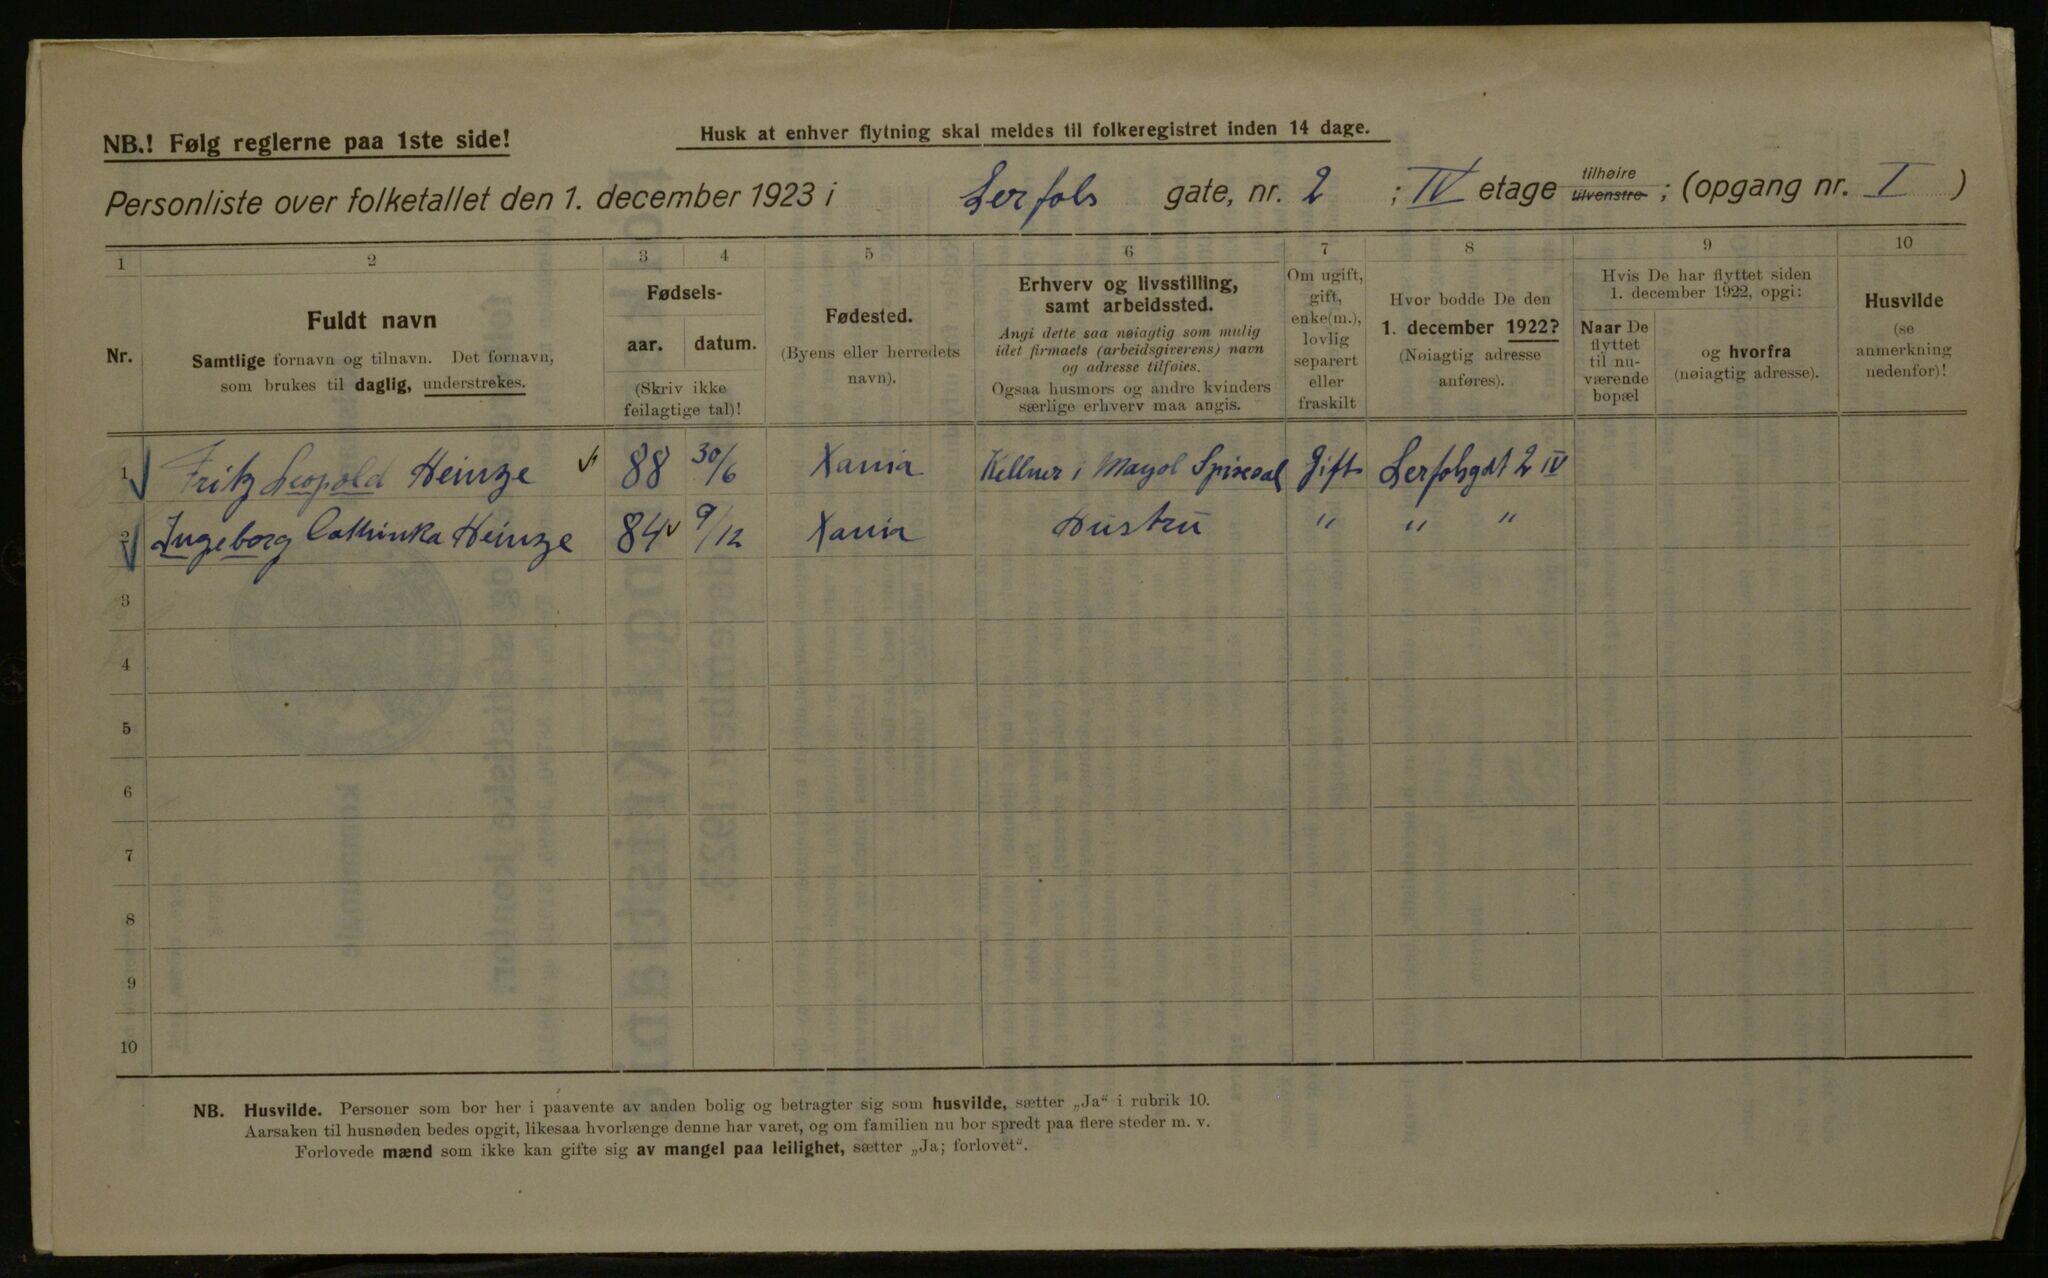 NB.! Følg reglerne paa 1ste side!
Husk at enhver flytning skal meldes til folkeregistret inden 14 dage.
Personliste over folketallet den 1. december 1923 i Lerfols gate, nr. 2 ; IV etage tilhøire tilvenstre ; (opgang nr. I )
1 2 3 4 5 6 7 8 9 10
Nr.
Fuldt navn
Samtlige fornavn og tilnavn. Det fornavn,
som brukes til daglig, understrekes.
Fødsels-
aar. datum.
(Skriv ikke
feilagtige tal)!
Fødested.
(Byens eller herredets
navn).
Erhverv og livsstilling,
samt arbeidssted.
Angi dette saa nøiagtig som mulig
idet firmaets (arbeidsgiverens) navn
og adresse tilføies.
Ogsaa husmors og andre kvinders
særlige erhverv maa angis.
Om ugift,
gift,
enke(m.),
lovlig
separert
eller
fraskilt
Hvor bodde De den
1. december 1922?
(Nøiagtig adresse
anføres).
Hvis De har flyttet siden
1. december 1922, opgi:
Naar De
flyttet
til nu-
værende
bopæl
og hvorfra
(nøiagtig adresse).
Husvilde
(se
anmerkning
nedenfor)!
1 Fritz Leopold Heinze 88 30/6 Xania Kellner i Mayol Spisesal Gift Lerfolsgdt 2 IV
2 Ingeborg Cathinka Heinze 84 9/12 Xania Hustru " " "
3
4
5
6
7
8
9
10
NB. Husvilde. Personer som bor her i paavente av anden bolig og betragter sig som husvilde, sætter „Ja" i rubrik 10.
Aarsaken til husnøden bedes opgit, likesaa hvorlænge denne har varet, og om familien nu bor spredt paa flere steder m. v.
Forlovede mænd som ikke kan gifte sig av mangel paa leilighet, sætter „Ja; forlovet".